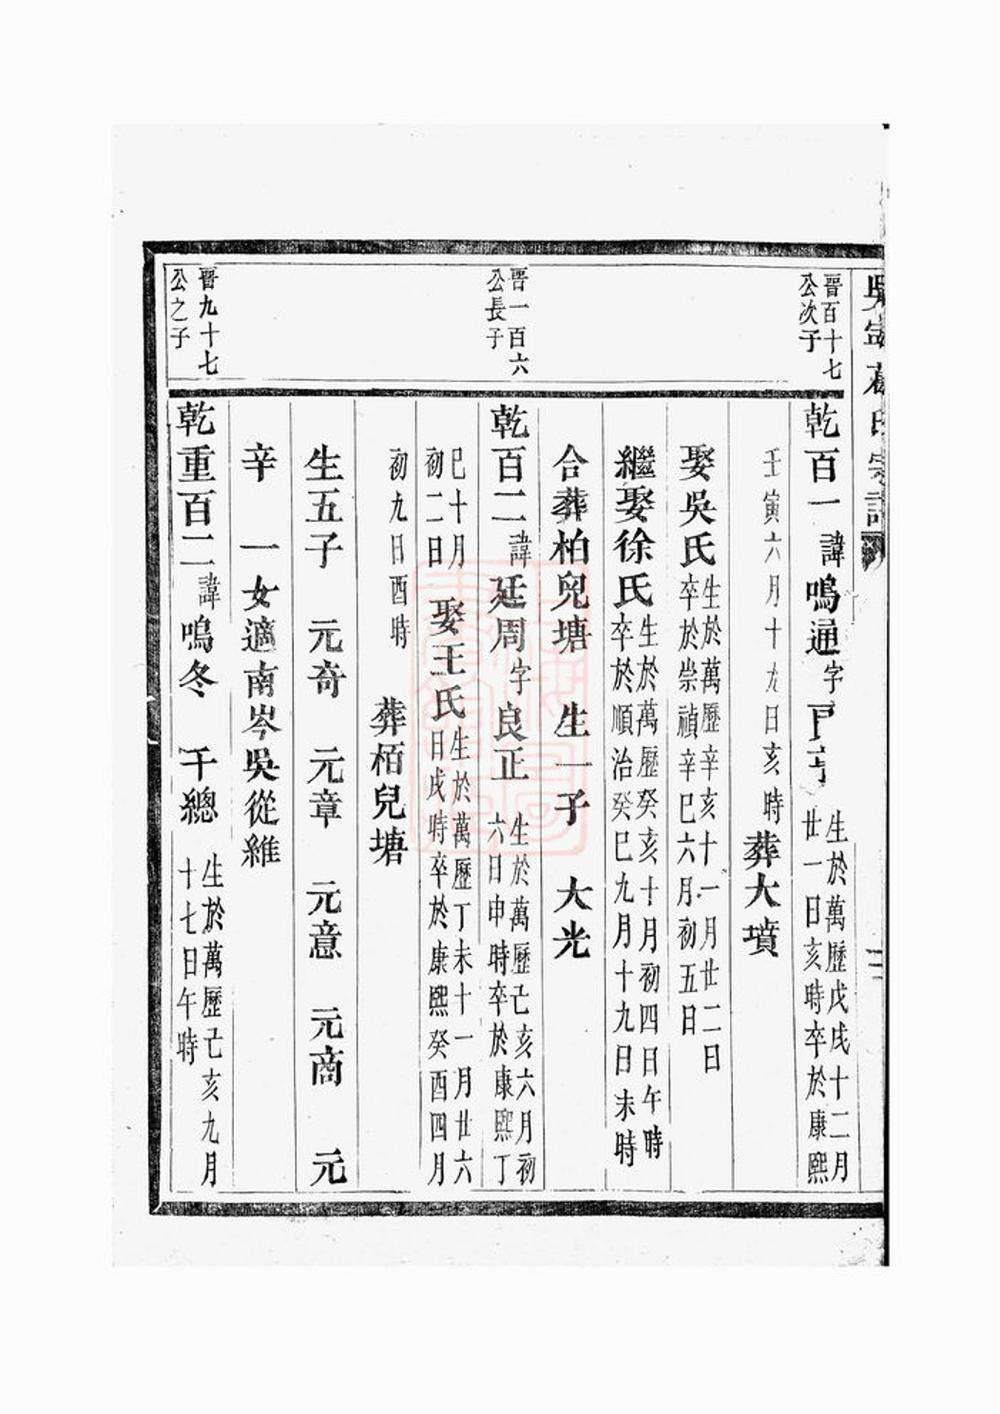 晉百十七
公次子
乾百一諱鳴通字
生於萬歷戊戌十二月
廿一日亥時卒於康熙
壬寅六月十九日亥時
葬大墳
娶吳氏
生於萬歷辛亥十一月廿二日
卒於崇禎辛巳六月初五日
繼娶徐氏
生於萬歷癸亥十月初四日午時
卒於順治癸巳九月十九日未時
合葬柏兒塘 生一子 大光
晉一百六
公長子
乾百二諱廷周字良正
生於萬歷己亥六月初
六日申時卒於康熙丁
巳十月
初二日
娶王氏
生於萬歷丁未十一月廿六
日戌時卒於康熙癸酉四月
初九日酉時
葬栢兒塘
生五子 元奇 元章 元意 元商 元
辛 一女適南岑吳從維
晉九十七
公之子
乾重百二諱鳴冬 千總
生於萬歷己亥九月
十七日午時